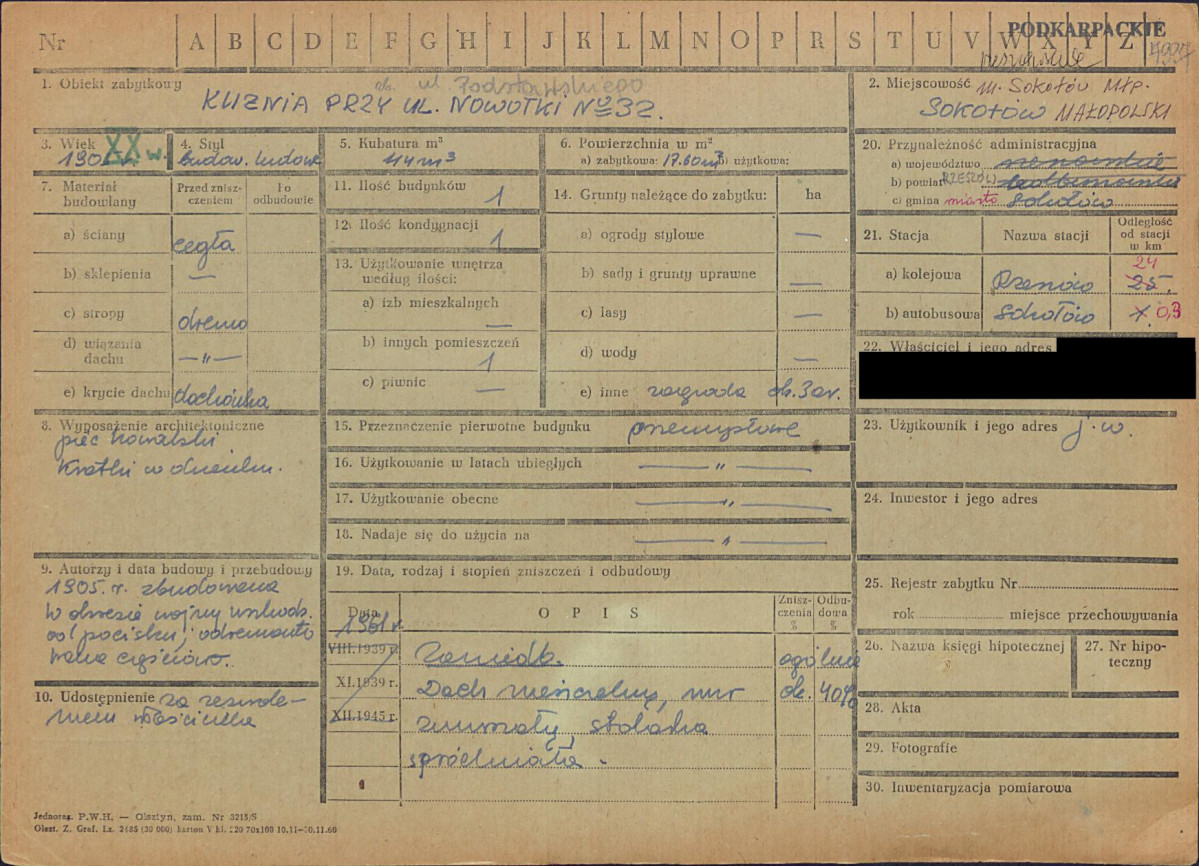 Nr A B C D E F G H I J K L M N O P R S T U V W X Y Z
PODKARPACKIE
rzeszowskie
1. Obiekt zabytkowy
ob. ul.
KUŹNIA PRZY UL. NOWOTKI № 32.
2. Miejscowość m. Sokołów Młp.
SOKOŁÓW MAŁOPOLSKI
3. Wiek
1905 r. XX w.
4. Styl
budow. ludowe
5. Kubatura m³
44 m³
6. Powierzchnia w m²
a) zabytkowa: 17.60 m² b) użytkowa:
7. Materiał budowlany
Przed zniszczeniem
Po odbudowie
a) ściany cegła
b) sklepienia —
c) stropy drewno
d) wiązania dachu —„—
e) krycie dachu dachówka
8. Wyposażenie architektoniczne
piec kowalski
Kratki w okienku.
9. Autorzy i data budowy i przebudowy
1905. r. zbudowana
W okresie wojny uszkodz.
od pocisku, odremonto
wana częściowo.
10. Udostępnienie za zezwole-
niem właściciela
11. Ilość budynków 1
12. Ilość kondygnacji 1
13. Użytkowanie wnętrza
według ilości:
a) izb mieszkalnych —
b) innych pomieszczeń 1
c) piwnic —
14. Grunty należące do zabytku: ha
a) ogrody stylowe —
b) sady i grunty uprawne —
c) lasy —
d) wody —
e) inne zagroda ok. 3 ar.
15. Przeznaczenie pierwotne budynku przemysłowe
16. Użytkowanie w latach ubiegłych —„—
17. Użytkowanie obecne —„—
18. Nadaje się do użycia na —„—
19. Data, rodzaj i stopień zniszczeń i odbudowy
Data O P I S Zniszczenia % Odbudowa %
1961 r.
VIII.1939 r. Zaniedb. ogólnie
XI.1939 r. Dach nieszczelny, mur ok. 40%
XII.1945 r. zmurszały, stolarka
spróchniała.
20. Przynależność administracyjna
a) województwo rzeszowskie
b) powiat RZESZÓW kolbuszowski
c) gmina miasto Sokołów
21. Stacja Nazwa stacji Odległość od stacji w km
24
a) kolejowa Rzeszów 25.
b) autobusowa Sokołów 1. 0,3
22. Właściciel i jego adres
23. Użytkownik i jego adres j. w.
24. Inwestor i jego adres
25. Rejestr zabytku Nr
rok miejsce przechowywania
26. Nazwa księgi hipotecznej
27. Nr hipoteczny
28. Akta
29. Fotografie
30. Inwentaryzacja pomiarowa
Jednoraz. P.W.H. — Olsztyn, zam. Nr 3215/S
Olszt. Z. Graf. Lz. 2485 (30 000) karton V kl. 220 70x100 10.11—30.11.60